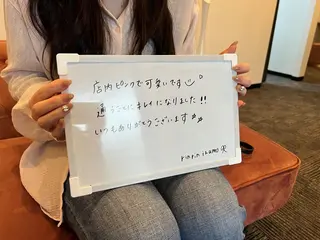 店内ピンクで可愛いです
通うごとにキレイになりました!!
いつもありがとうございます